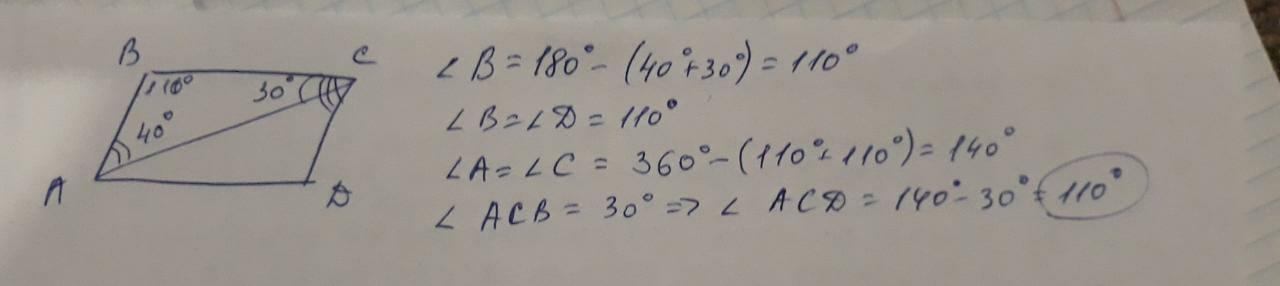 B
C
110°
30°
40°
A
D
∠ B = 180° - (40°+30°) = 110°
∠ B = ∠ D = 110°
∠ A = ∠ C = 360° - (110°+110°) = 140°
∠ ACB = 30° => ∠ ACD = 140° - 30° = 110°